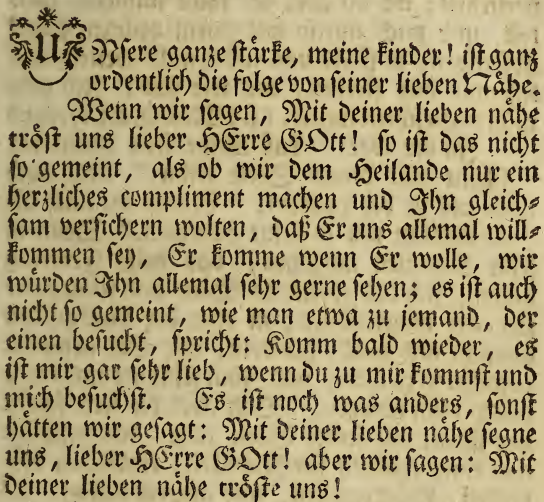 UNsere ganze stärke, meine kinder! ist ganz
ordentlich die folge von seiner lieben Nähe.
Wenn wir sagen, Mit deiner lieben nähe
tröst uns lieber HErre GOtt! so ist das nicht
so gemeint, als ob wir dem Heilande nur ein
herzliches compliment machen und Ihn gleich⸗
sam versichern wolten, daß Er uns allemal will⸗
kommen sey, Er komme wenn Er wolle, wir
würden Ihn allemal sehr gerne sehen; es ist auch
nicht so gemeint, wie man etwa zu jemand, der
einen besucht, spricht: Komm bald wieder, es
ist mir gar sehr lieb, wenn du zu mir kommst und
mich besuchst. Es ist noch was anders, sonst
hätten wir gesagt: Mit deiner lieben nähe segne
uns, lieber HErre GOtt! aber wir sagen: Mit
deiner lieben nähe tröste uns!